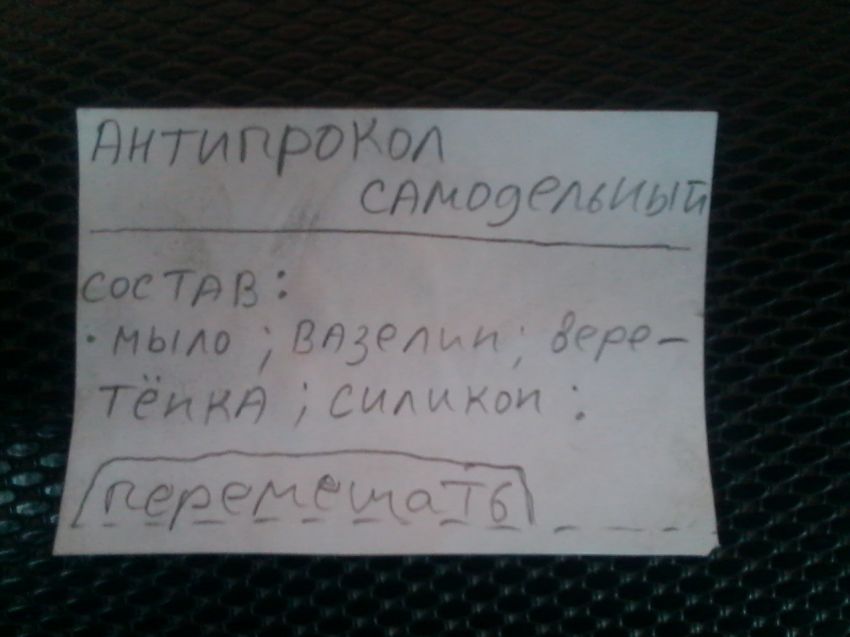 АНТИПРОКОЛ
САМОДЕЛЬНЫЙ
СОСТАВ:
· МЫЛО ; ВАЗЕЛИН ; ВЕРЕ-
ТЁНКА ; СИЛИКОН :
ПЕРЕМЕШАТЬ